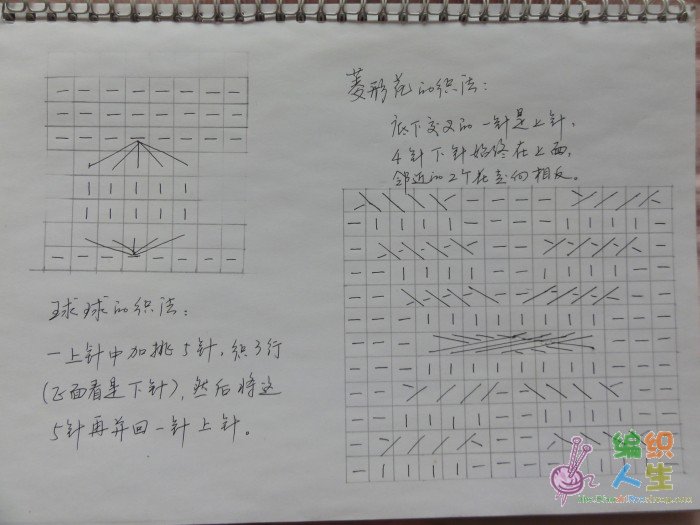 球球的织法:
一上针中加挑5针,织3行
(正面看是下针),然后将这
5针再并回一针上针。
菱形花的织法:
底下交叉的一针是上针,
4针下针始终在上面,
邻近的2个花走向相反。
编织
人生